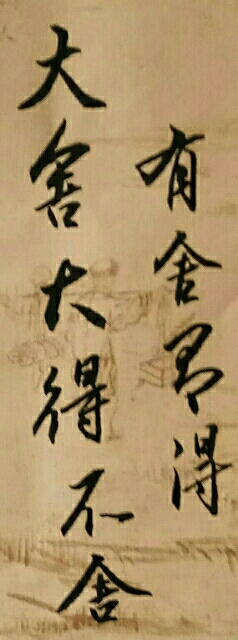 有舍即得
大舍大得不舍